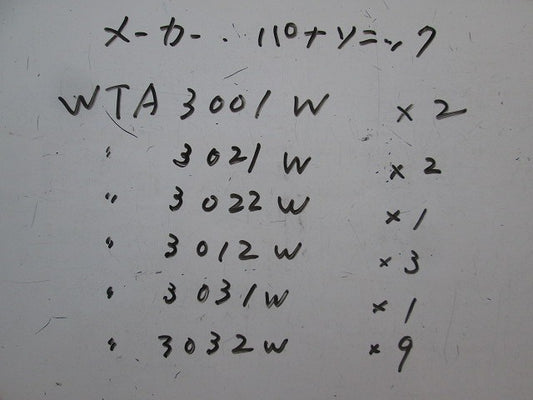 メーカー . パナソニック
WTA 3001 W × 2
〃 3021 W × 2
〃 3022 W × 1
〃 3012 W × 3
〃 3031 W × 1
〃 3032 W × 9